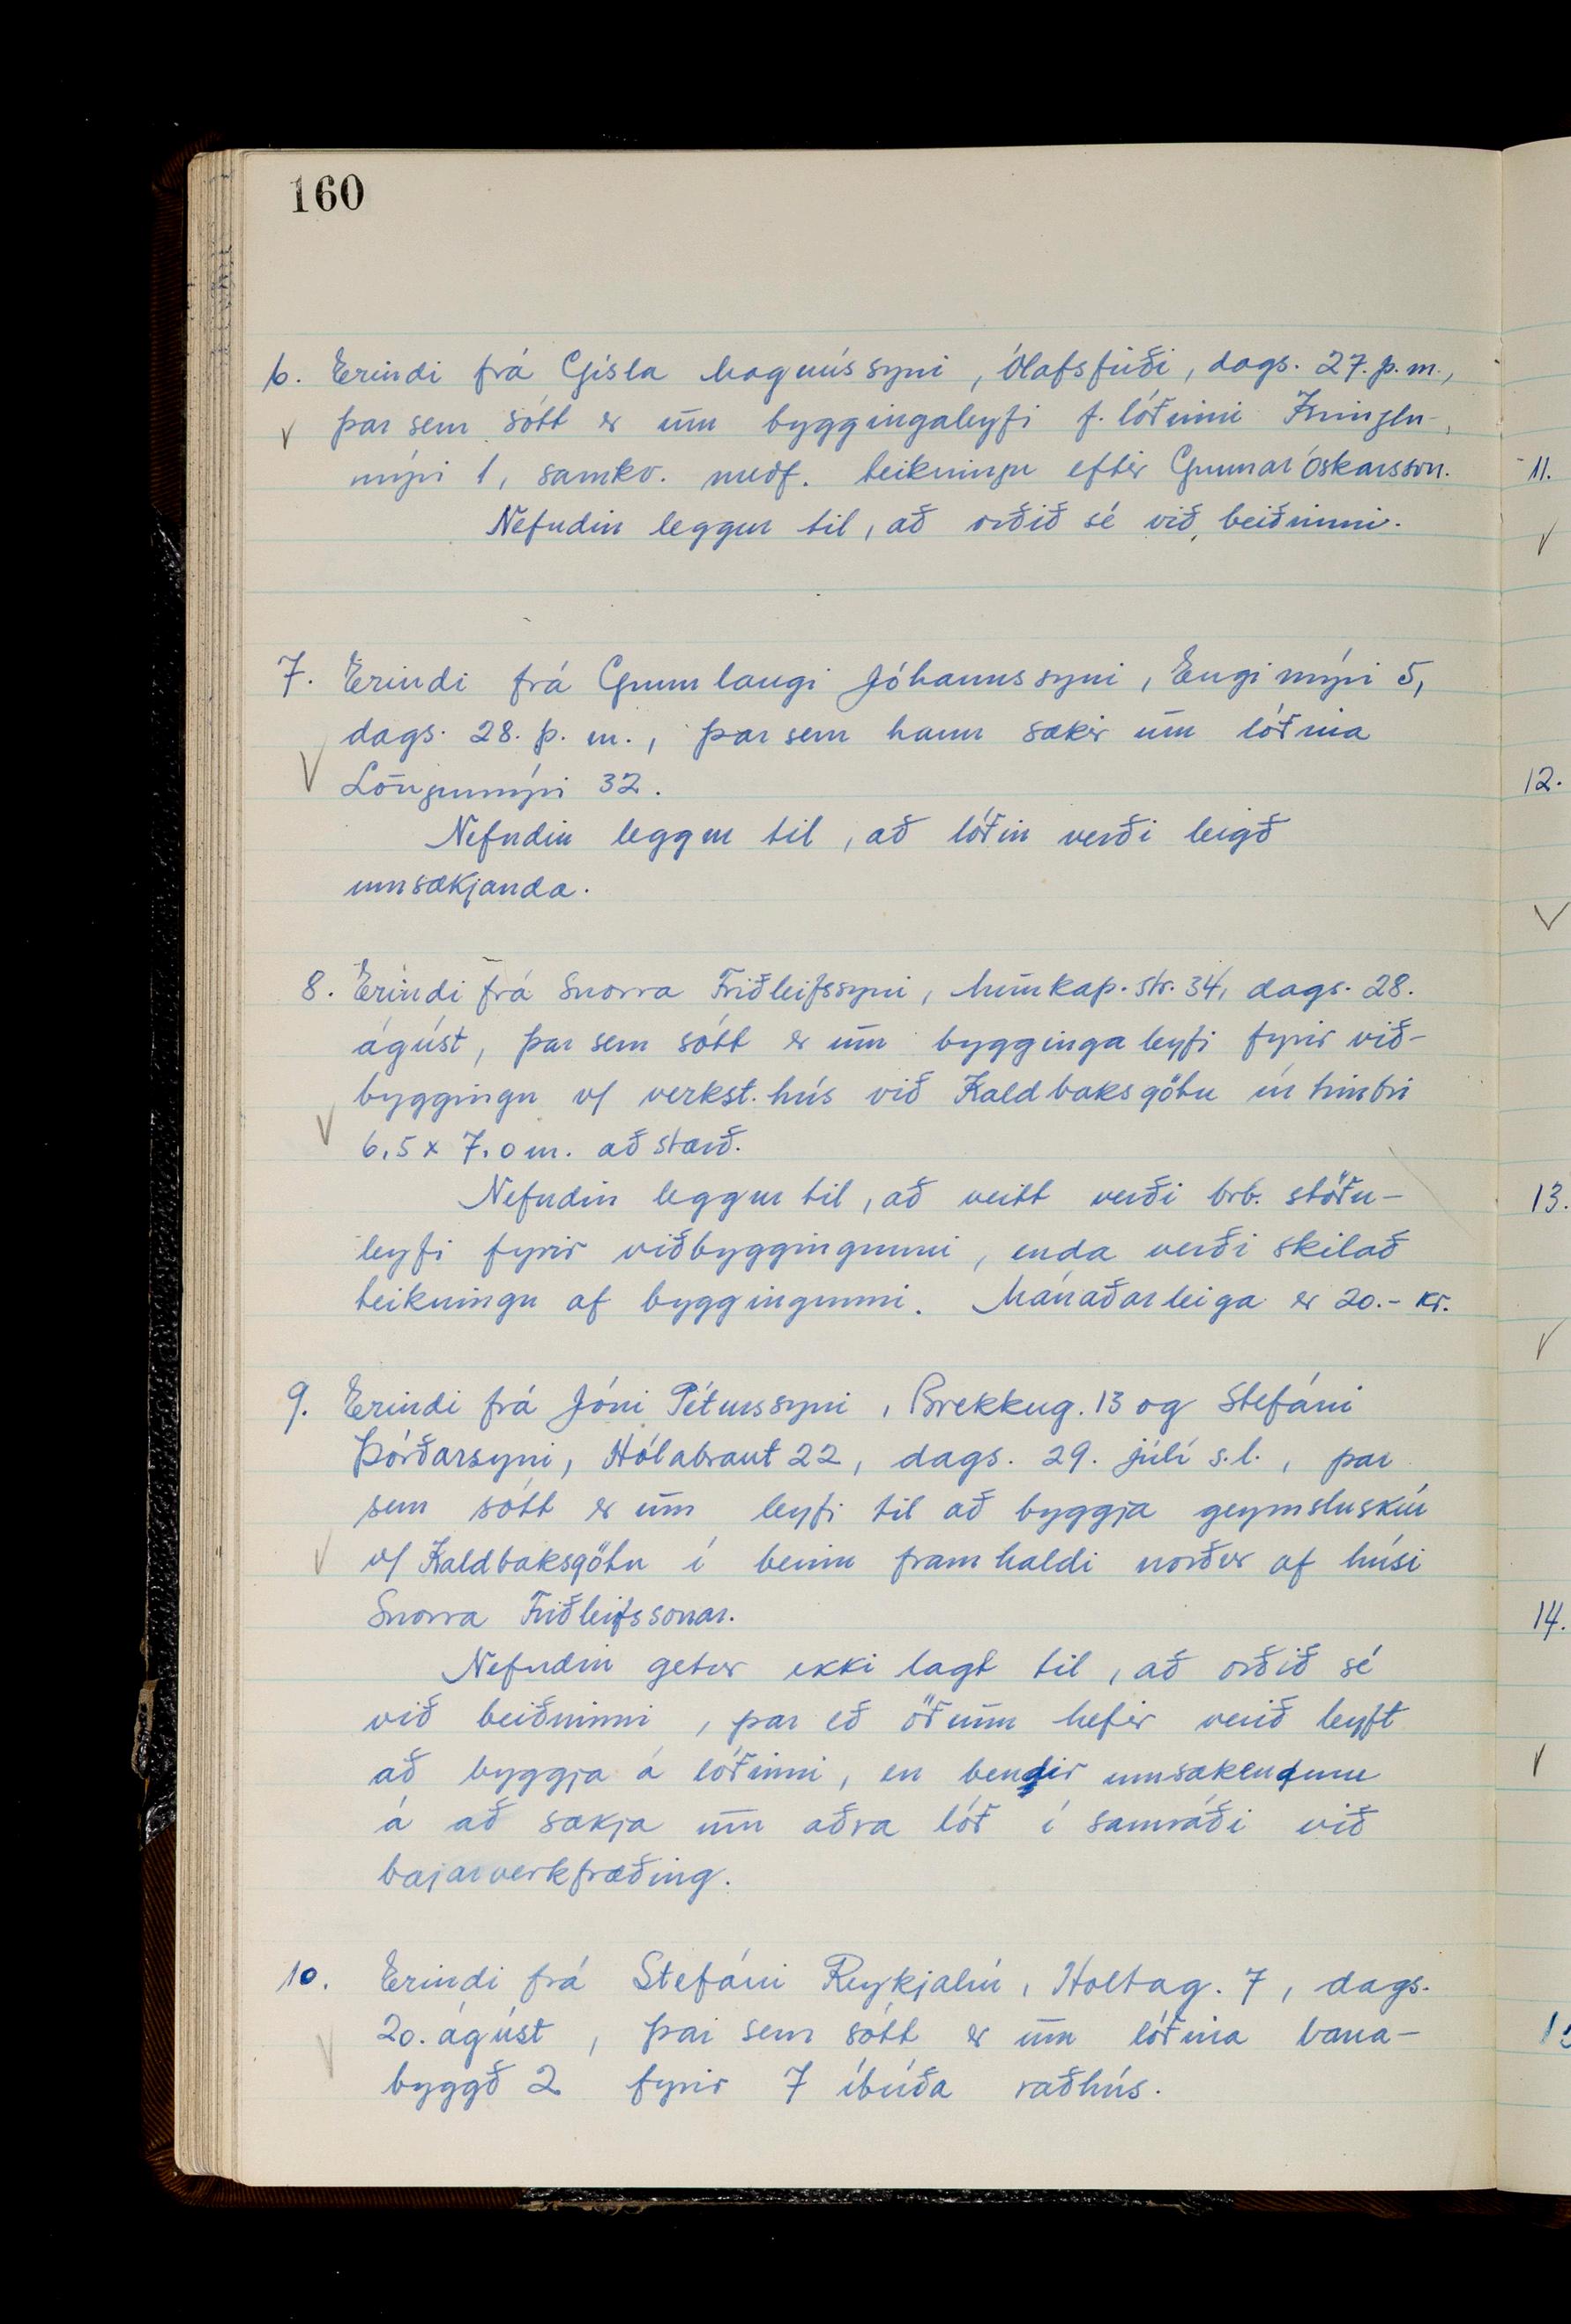 160
6. Erindi frá Gísla Magnússyni, Ólafsfirði, dags. 27. þ.m.,
þar sem sótt er um byggingaleyfi f. lóðinni Kringlu-
mýri 1, samkv. meðf. teikningu eftir Gunnar Óskarsson.
Nefndin leggur til, að orðið sé við beiðninni.
7. Erindi frá Gunnlaugi Jóhannssyni, Engimýri 5,
dags. 28. þ. m., þar sem hann sækir um lóðina
Löngumýri 32.
Nefndin leggur til, að lóðin verði leigð
umsækjanda.
8. Erindi frá Snorra Friðleifssyni, Munkaþ.str. 34, dags. 28.
ágúst, þar sem sótt er um byggingaleyfi fyrir við-
byggingu v/ verkst.hús við Kaldbaksgötu úr timbri
6,5 x 7,0 m. að stærð.
Nefndin leggur til, að veitt verði brb. stöðu-
leyfi fyrir viðbyggingunni, enda verði skilað
teikningu af byggingunni. Mánaðarleiga er 20.- kr.
9. Erindi frá Jóni Péturssyni, Brekkug. 13 og Stefáni
Þórðarsyni, Hólabraut 22, dags. 29. júlí s.l., þar
sem sótt er um leyfi til að byggja geymsluskúr
v/ Kaldbaksgötu í beinu framhaldi norður af húsi
Snorra Friðleifssonar.
Nefndin getur ekki lagt til, að orðið sé
við beiðninni, þar eð öðrum hefir verið leyft
að byggja á lóðinni, en bendir umsækendum
á að sækja um aðra lóð í samráði við
bæjarverkfræðing.
10. Erindi frá Stefáni Reykjalín, Holtag. 7, dags.
20. ágúst, þar sem sótt er um lóðina Dana-
byggð 2 fyrir 7 íbúða raðhús.
11.
12.
13.
14.